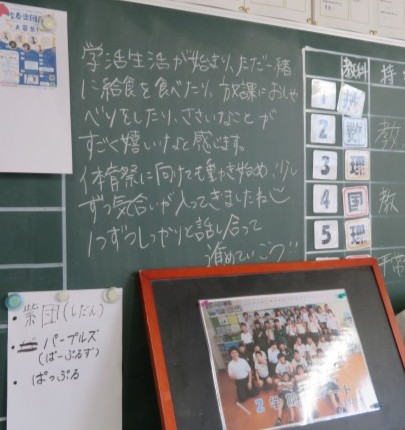 学活生活が始まり、ただ一緒
に給食を食べたり、放課におしゃ
べりをしたり、ささいなことが
すごく嬉しいなと感じます。
体育祭に向けても動き始め、少し
ずつ気合いが入ってきましたね
1つずつしっかりと話し合って
進めていこう!!
教科
持
1
2 数
3 理
4 国
5 理
教
教
紫団(しだん)
パープルズ
(ぱーぷるず)
ぱっぷる
2学期